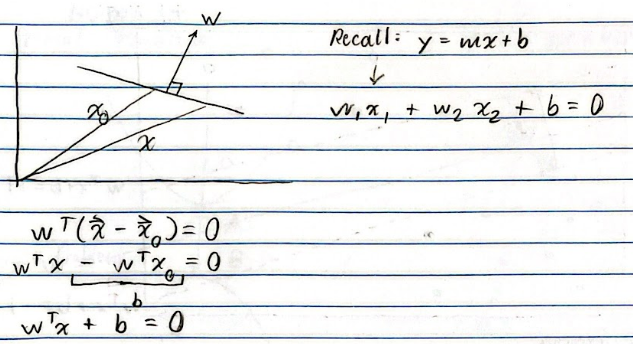 w
Recall: y = mx + b
↓
w₁x₁ + w₂x₂ + b = 0
x₀
x
wᵀ(x⃗ - x⃗₀) = 0
wᵀx - wᵀx₀ = 0
b
wᵀx + b = 0